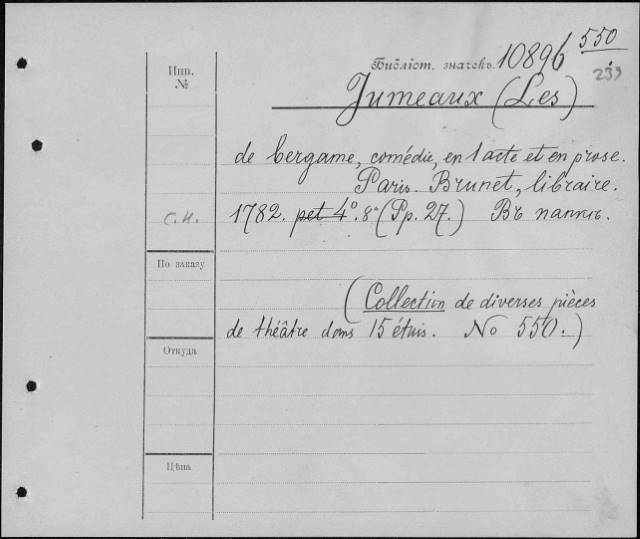 550
Библіот. значекъ. 10896
239
Инв.
№
Jumeaux (Les)
de bergame, comédie, en 1 acte et en prose.
Paris. Brunet, libraire.
С.К. 1782. pet 4º. 8º (Pp. 27.) Въ папкѣ.
По заказу
(Collection de diverses pièces
de théâtre dans 15 étuis. No 550.)
Откуда
Цѣна